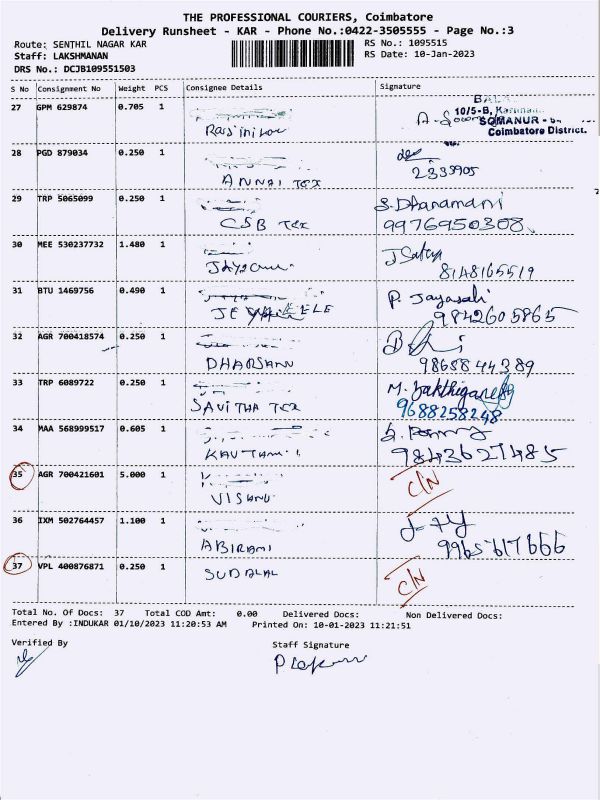 THE PROFESSIONAL COURIERS, Coimbatore
Delivery Runsheet - KAR - Phone No.:0422-3505555 - Page No.:3
Route: SENTHIL NAGAR KAR
RS No.: 1095515
Staff: LAKSHMANAN
RS Date: 10-Jan-2023
DRS No.: DCJB109551503
S No Consignment No Weight PCS Consignee Details Signature
27 GPM 629874 0.705 1
BALA
10/5-B,
SOMANUR -
Coimbatore District.
28 PGD 879034 0.250 1
ANNAI TEX 2339905
29 TRP 5065099 0.250 1 S. Dhanamani
CSB TEX 9976950308
30 MEE 530237732 1.480 1
8148165519
31 BTU 1469756 0.490 1 P. Jayasahi
ELE 9842605865
32 AGR 700418574 0.250 1
DHARSANU 9865844389
33 TRP 6089722 0.250 1 M.
SAVITHA TEX 9688258248
34 MAA 568999517 0.605 1
9843627485
35 AGR 700421601 5.000 1 C/N
VISHNU
36 IXM 502764457 1.100 1
ABIRAMI 9965617666
37 VPL 400876871 0.250 1 C/N
SUDALAI
Total No. Of Docs: 37 Total COD Amt: 0.00 Delivered Docs: Non Delivered Docs:
Entered By :INDUKAR 01/10/2023 11:20:53 AM Printed On: 10-01-2023 11:21:51
Verified By Staff Signature